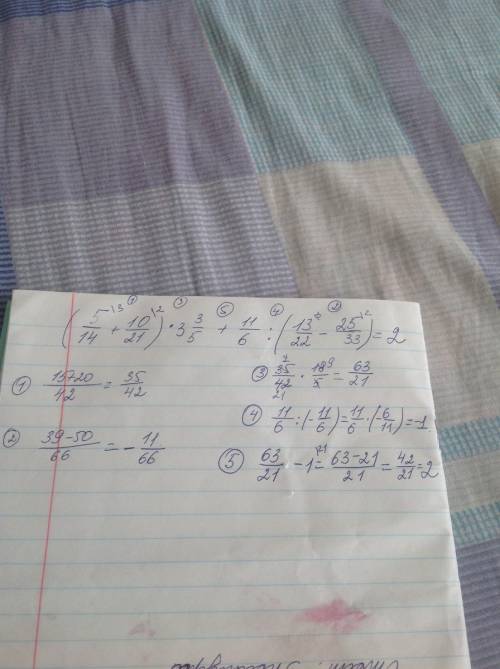 (5/14 \3 + 10/21 \2) · 3 3/5 + 11/6 : (13/22 \3 − 25/33 \2) = 2
① (15+20)/42 = 35/42
② (39−50)/66 = −11/66
③ 35/42 · 18/5 = 63/21
④ 11/6 : (−11/6) = 11/6 · (−6/11) = −1
⑤ 63/21 − 1 \21 = (63−21)/21 = 42/21 = 2